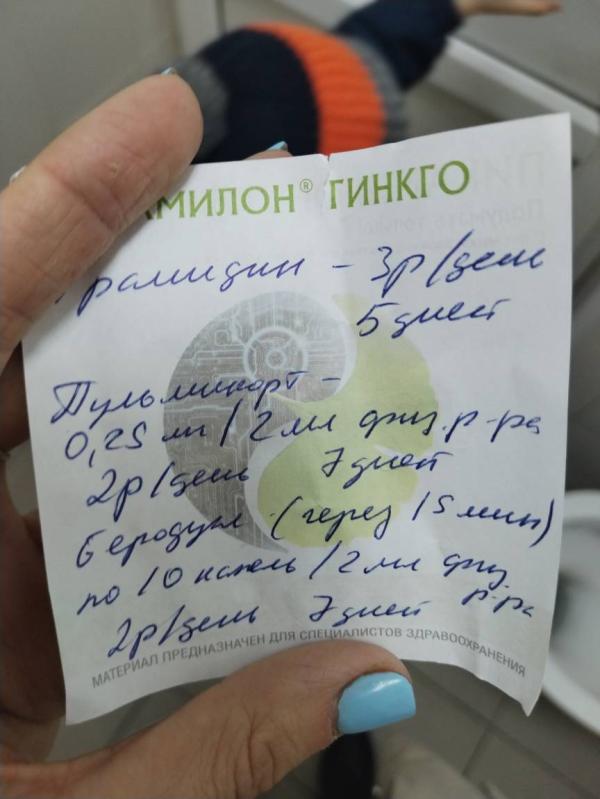 АМИЛОН® ГИНКГО
рамидин - 3р/день
5 дней
Пульмикорт -
0,25 мг/2 мл физ.р-ра
2р/день 7 дней
Беродуал (через 15 мин)
по 10 капель/2 мл физ
р-ра
2р/день 7 дней
МАТЕРИАЛ ПРЕДНАЗНАЧЕН ДЛЯ СПЕЦИАЛИСТОВ ЗДРАВООХРАНЕНИЯ